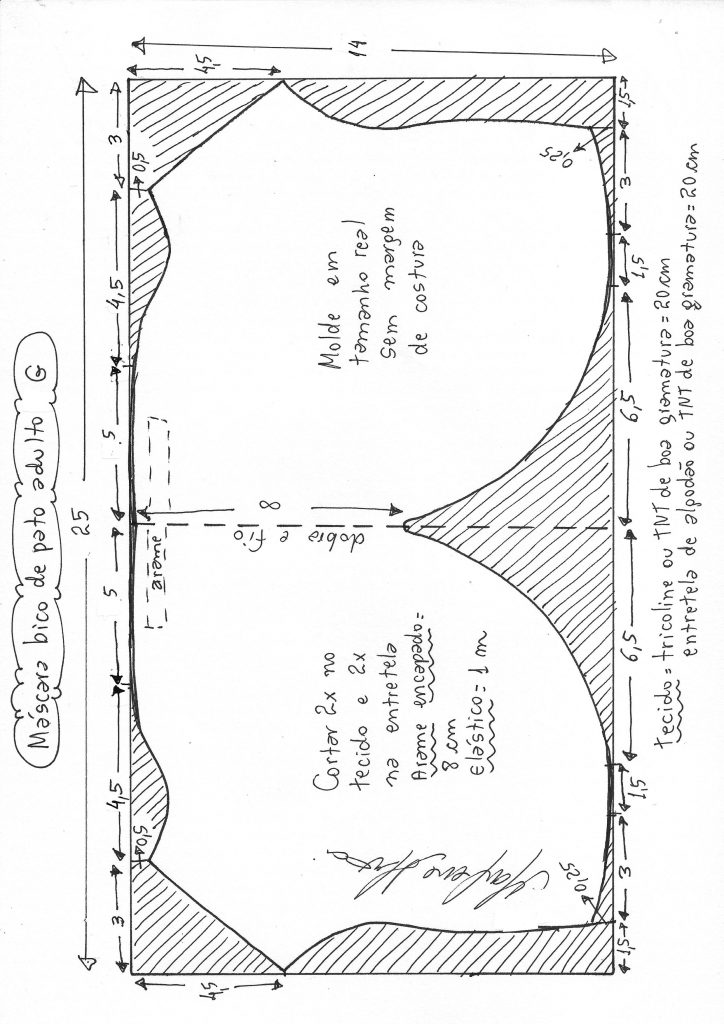 Máscara bico de pato adulto G
25
14
4,5
3
0,5
4,5
5
5
4,5
0,5
3
4,5
1,5
0,25
3
1,5
6,5
6,5
1,5
3
0,25
1,5
Molde em
tamanho real
sem margem
de costura
8
dobra e fio
arame
Cortar 2x no
tecido e 2x
na entretela
Arame encapado=
8 cm
Elástico = 1 m
Tecido = tricoline ou TNT de boa gramatura = 20 cm
entretela de algodão ou TNT de boa gramatura = 20 cm